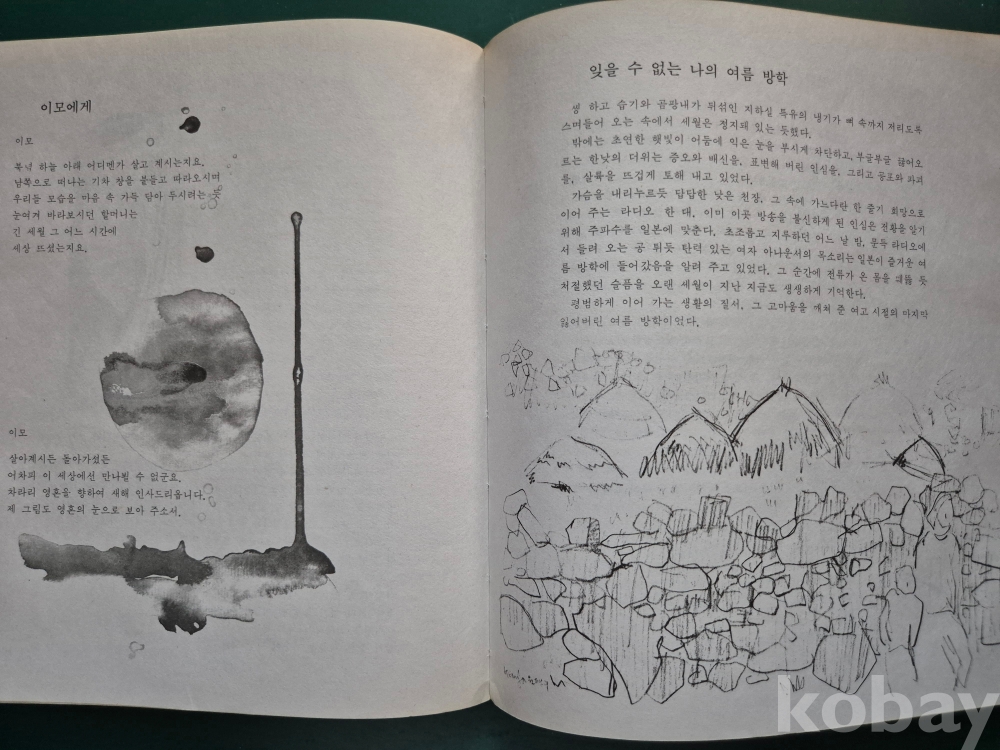 이모에게
이모
북녘 하늘 아래 어디멘가 살고 계시는지요.
남쪽으로 떠나는 기차 창을 붙들고 따라오시며
우리들 모습을 마음 속 가득 담아 두시려는 듯
눈여겨 바라보시던 할머니는
긴 세월 그 어느 시간에
세상 뜨셨는지요.
이모
살아계시든 돌아가셨든
어차피 이 세상에선 만나뵐 수 없군요.
차라리 영혼을 향하여 새해 인사드리옵니다.
제 그림도 영혼의 눈으로 보아 주소서.
잊을 수 없는 나의 여름 방학
쌩 하고 습기와 곰팡내가 뒤섞인 지하실 특유의 냉기가 뼈 속까지 저리도록
스며들어 오는 속에서 세월은 정지돼 있는 듯했다.
밖에는 초연한 햇빛이 어둠에 익은 눈을 부시게 차단하고, 부글부글 끓어오
르는 한낮의 더위는 증오와 배신을, 표변해 버린 인심을, 그리고 공포와 파괴
를, 살륙을 뜨겁게 토해 내고 있었다.
가슴을 내리누르듯 답답한 낮은 천장, 그 속에 가느다란 한 줄기 희망으로
이어 주는 라디오 한 대. 이미 이곳 방송을 불신하게 된 인심은 전황을 알기
위해 주파수를 일본에 맞춘다. 초조롭고 지루하던 어느 날 밤, 문득 라디오에
서 들려 오는 공 튀듯 탄력 있는 여자 아나운서의 목소리는 일본이 즐거운 여
름 방학에 들어갔음을 알려 주고 있었다. 그 순간에 전류가 온 몸을 꿰뚫 듯
처절했던 슬픔을 오랜 세월이 지난 지금도 생생하게 기억한다.
평범하게 이어 가는 생활의 질서, 그 고마움을 깨쳐 준 여고 시절의 마지막
잃어버린 여름 방학이었다.
kobay